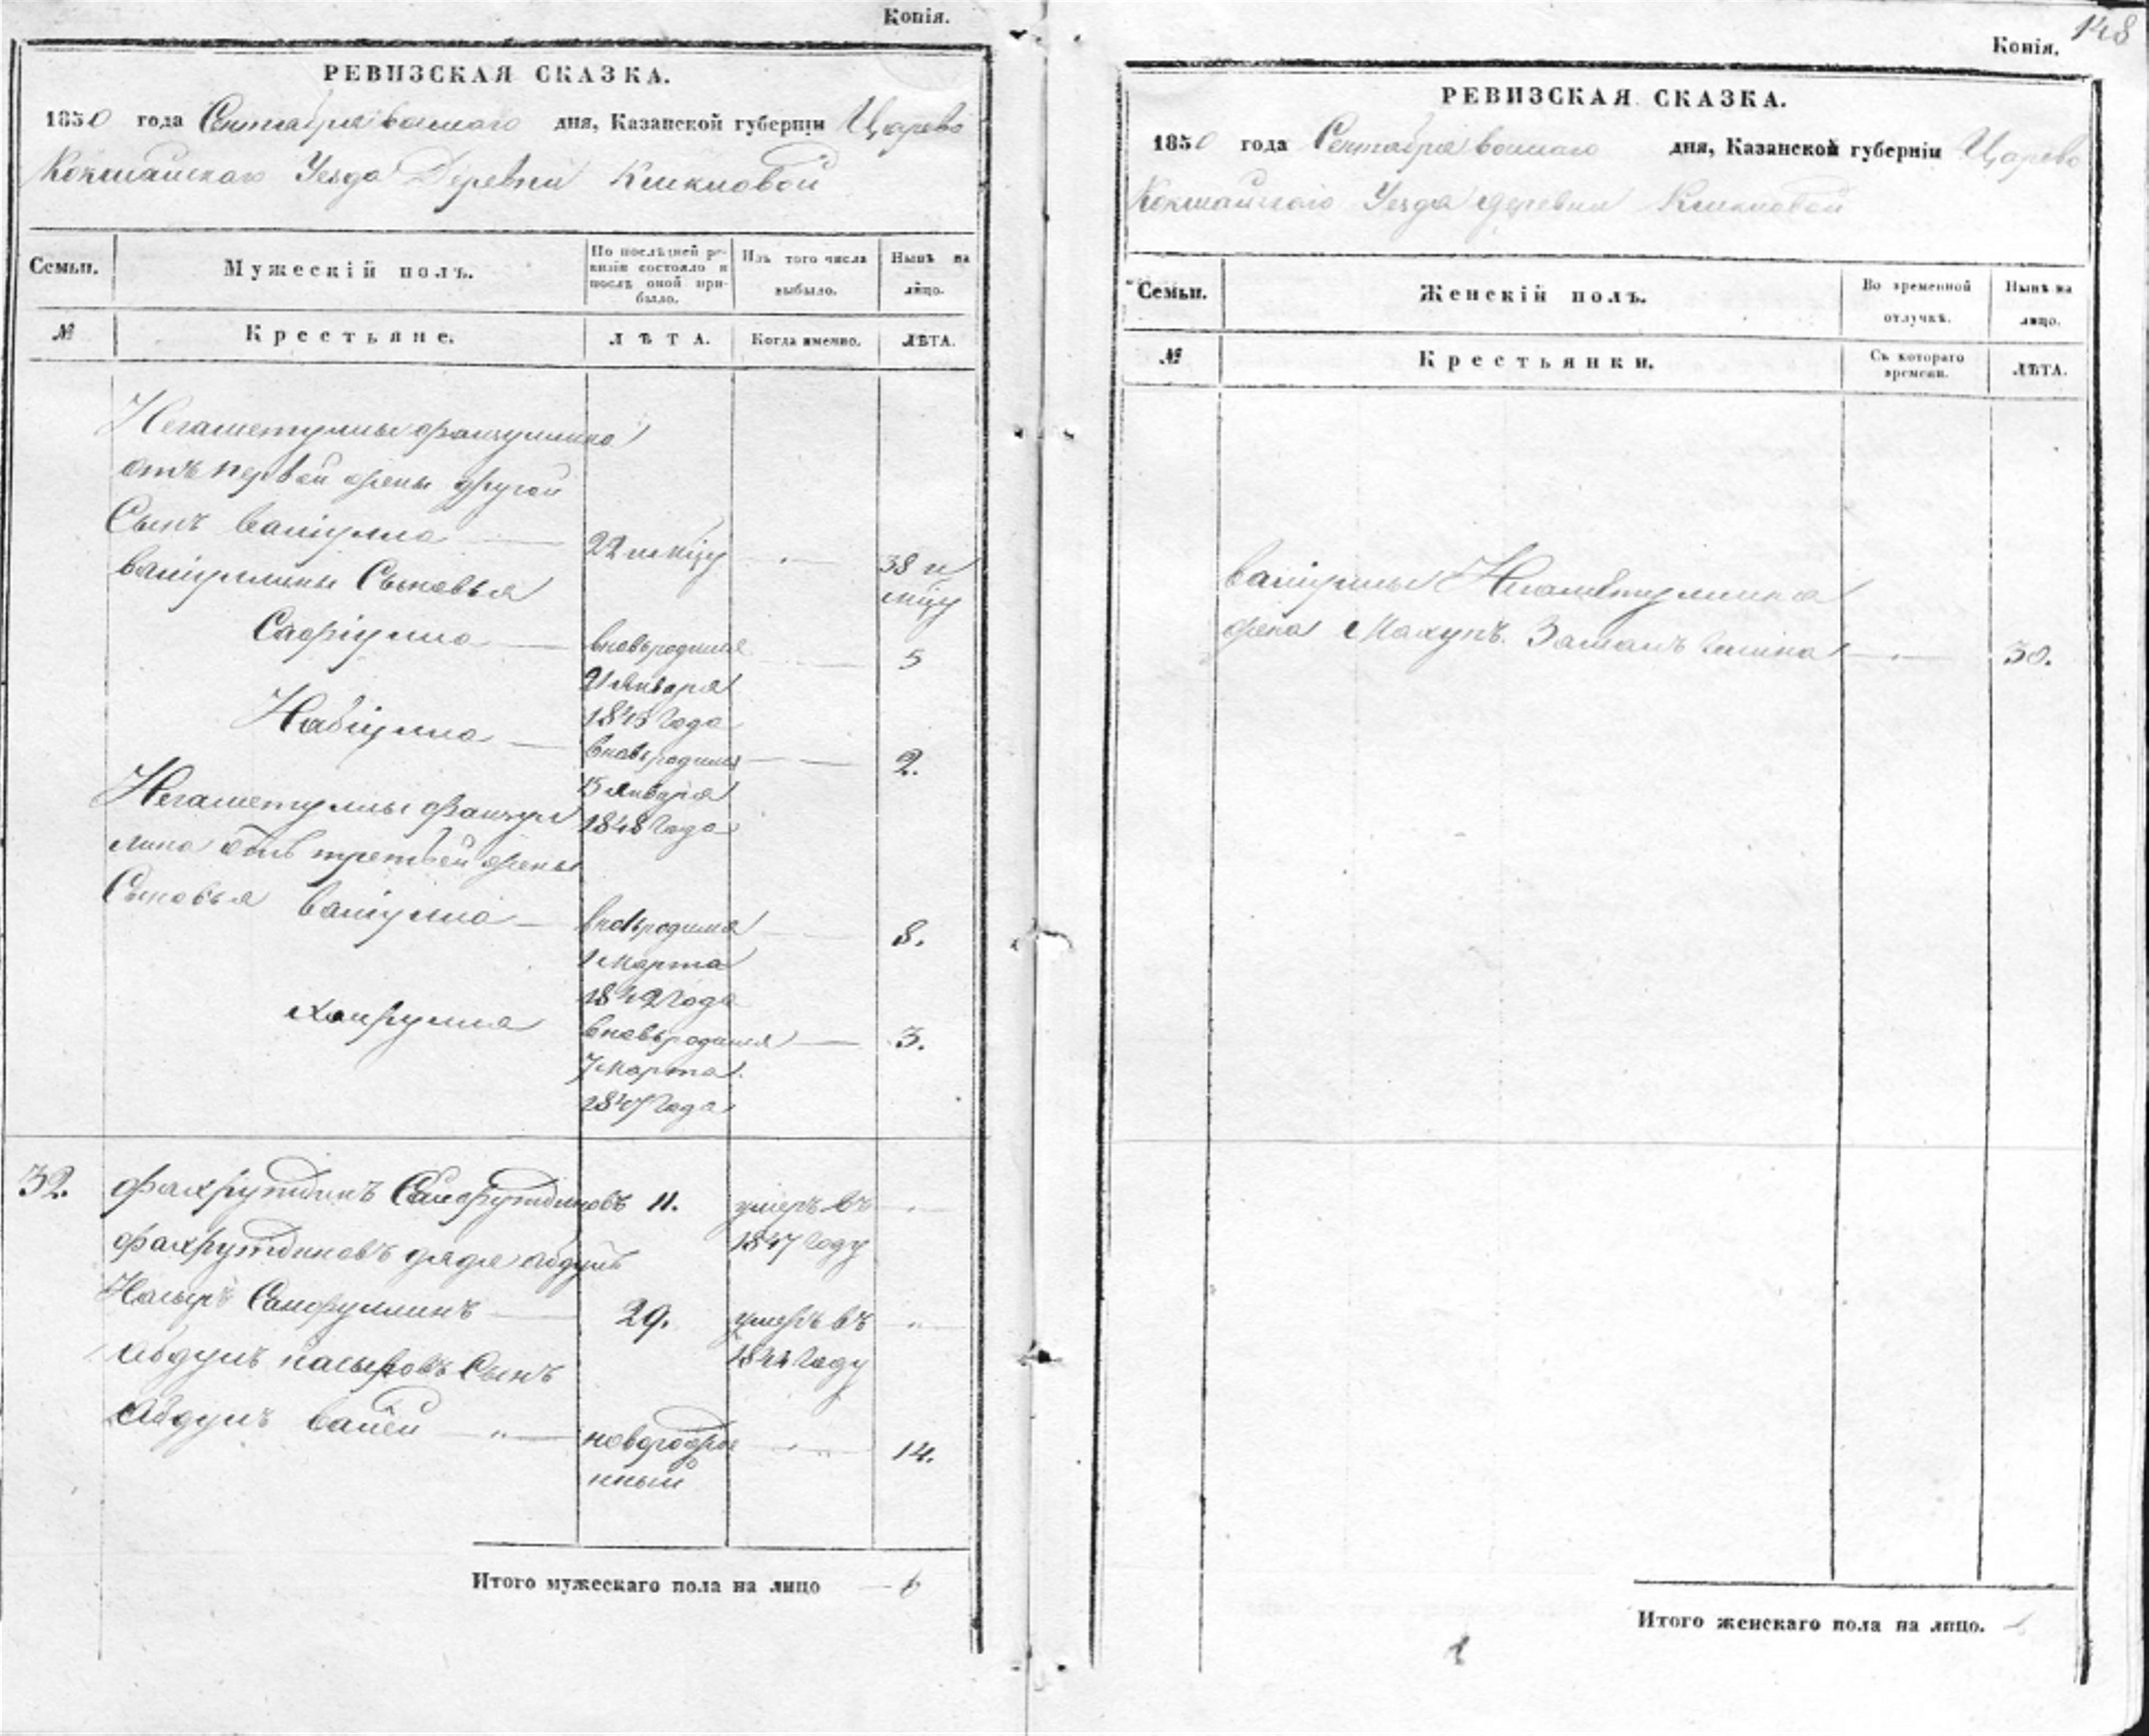 Копія.
РЕВИЗСКАЯ СКАЗКА.
1850 года Сентября восмаго дня, Казанской губерніи Царево
Кокшайскаго Уезда Деревни
Семьи.
Мужескій полъ.
По послѣдней ре-
визіи состояло и
послѣ оной при-
было.
Изъ того числа
выбыло.
Нынѣ на
лицо.
№
Крестьяне.
ЛѢТА.
Когда именно.
ЛѢТА.
Негаметуллы
отъ первой жены другой
Сынъ Валіулла 22 38 и
Валіуллины Сыновья
Сафіулла вновьродился 5
21 Января
1845 Года
Набіулла вновьродился 2.
15 Января
1848 Года
Негаметуллы
лина отъ третьей жены
Сыновья Валіулла вновьродился 8.
1 Марта
1842 Года
Хайрулла вновьродился 3.
7 Марта
1847 Года
32. Фахрутдинъ Сайфутдиновъ 11. умеръ въ
1847 Году
Фахрутдиновъ дядя Абдулъ
Насыръ Сайфуллинъ 29. умеръ въ
1844 Году
Абдулъ насыровъ Сынъ
Абдулъ Валей новорожде 14.
нный
Итого мужескаго пола на лицо 6
148
Копія.
РЕВИЗСКАЯ СКАЗКА.
1850 года Сентября восмаго дня, Казанской губерніи Царево
Кокшайскаго Уезда деревни
Семьи.
Женскій полъ.
Во временной
отлучкѣ.
Нынѣ на
лицо.
№
Крестьянки.
Съ котораго
времени.
ЛѢТА.
Валіуллы Негаметуллина
жена 30.
Итого женскаго пола на лицо. 1